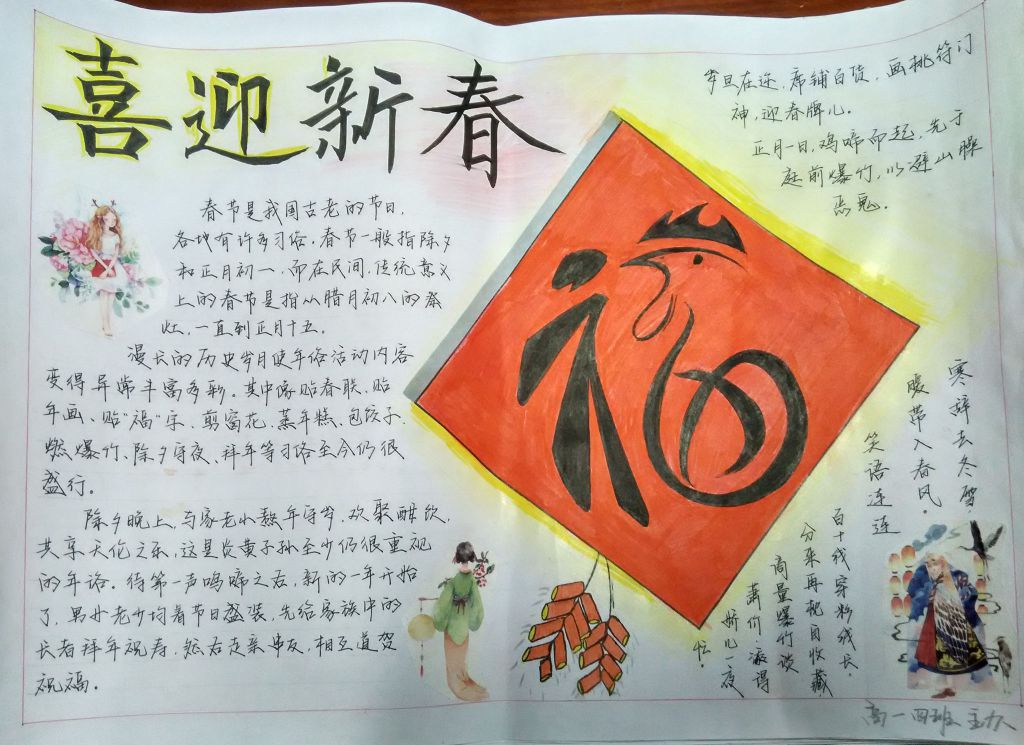 喜迎新春
春节是我国古老的节日,
各地有许多习俗,春节一般指除夕
和正月初一,而在民间,传统意义
上的春节是指从腊月初八的祭
灶,一直到正月十五。
漫长的历史岁月使年俗活动内容
变得异常丰富多彩。其中像贴春联、贴
年画、贴“福”字、剪窗花、蒸年糕、包饺子
燃爆竹、除夕守夜、拜年等习俗至今仍很
盛行。
除夕晚上,与家老小熬年守岁,欢聚酣饮,
共享天伦之乐,这是炎黄子孙至少仍很重视
的年俗。待第一声鸣啼之后,新的一年开始
了,男女老少均着节日盛装,先给家族中的
长者拜年祝寿,然后走亲串友,相互道贺
祝福。
岁旦在迩,席铺百货,画桃符门
神,迎春牌儿。
正月一日,鸡啼而起,先于
庭前爆竹,以避山臊
恶鬼。
福
寒辞去冬雪,
暖带入春风。
笑语连连
百十钱穿彩线长,
分来再把自收藏
商量爆竹谈
箫价
娇儿一夜
忙。
高一四班